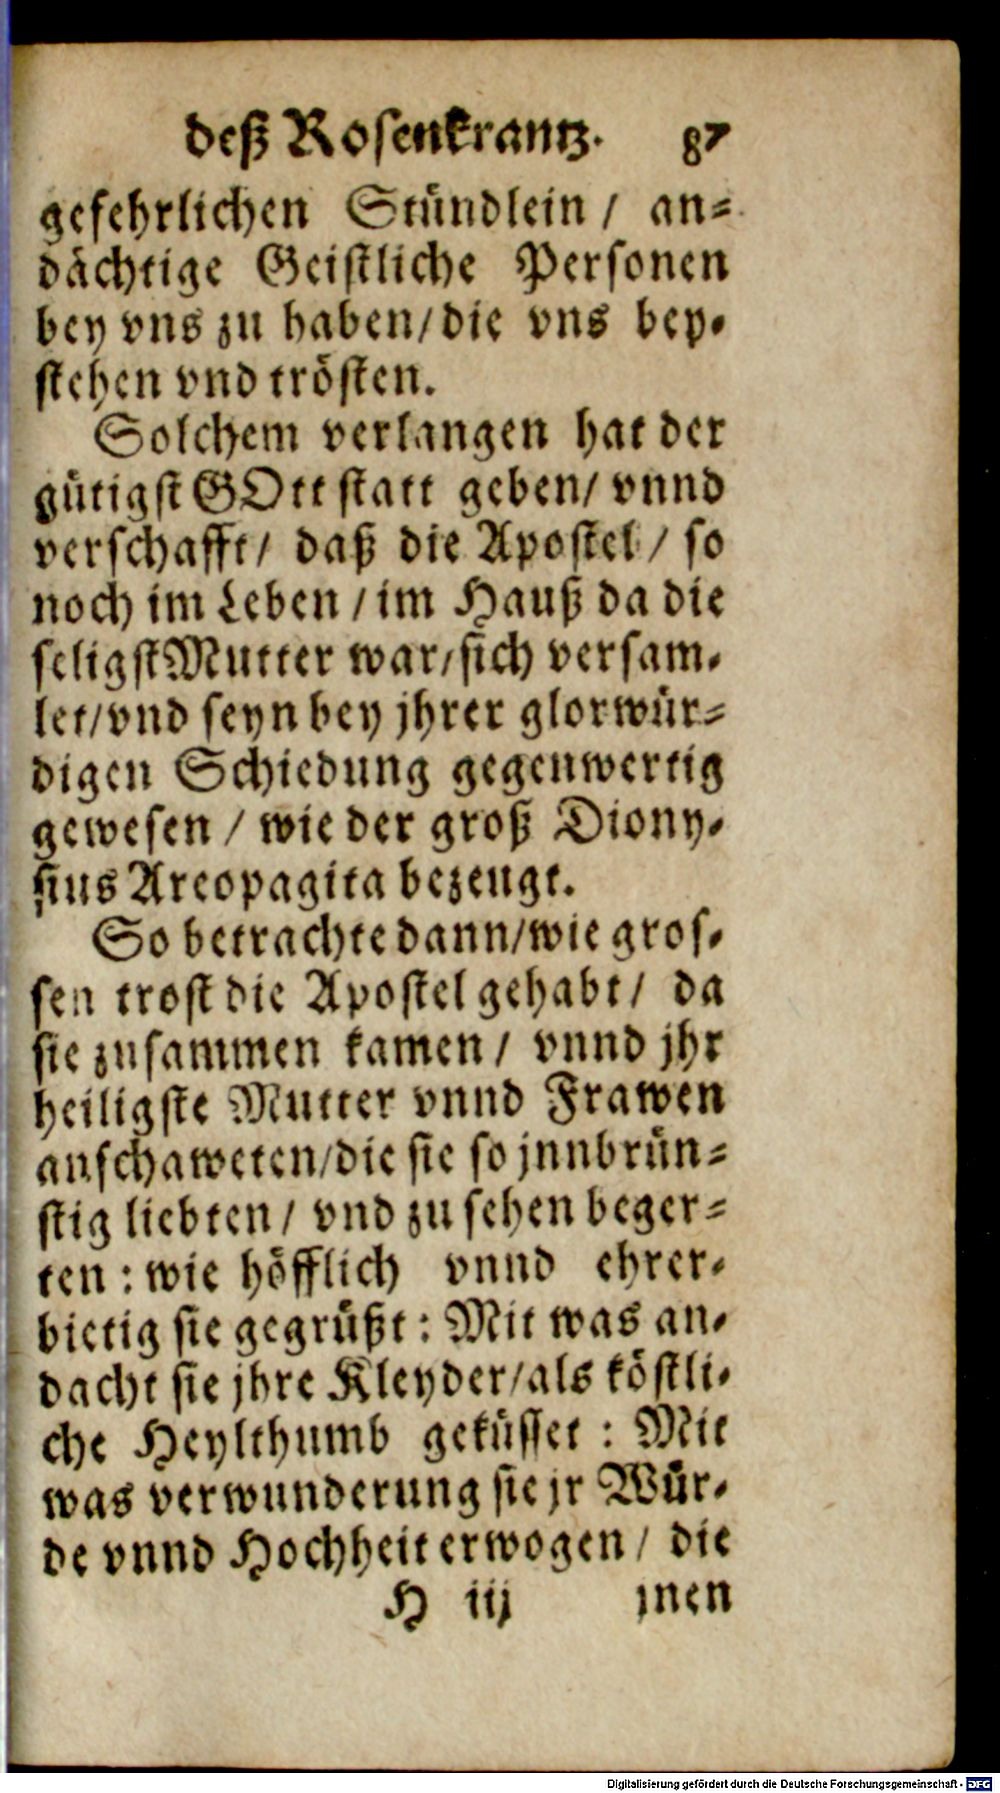 deß Rosenkrantz. 87
gefehrlichen Stündlein / an-
dächtige Geistliche Personen
bey vns zu haben/die vns bey-
stehen vnd trösten.
Solchem verlangen hat der
gütigst GOtt statt geben/ vnnd
verschafft/ daß die Apostel / so
noch im Leben / im Hauß da die
seligst Mutter war/sich versam-
let/vnd seyn bey jhrer glorwür-
digen Schiedung gegenwertig
gewesen / wie der groß Diony-
sius Areopagita bezeugt.
So betrachte dann/wie gros-
sen trost die Apostel gehabt/ da
sie zusammen kamen / vnnd jhr
heiligste Mutter vnnd Frawen
anschaweten/die sie so jnnbrün-
stig liebten / vnd zu sehen beger-
ten : wie höfflich vnnd ehrer-
bietig sie gegrüßt : Mit was an-
dacht sie jhre Kleyder/als köstli-
che Heylthumb geküsset : Mit
was verwunderung sie jr Wür-
de vnnd Hochheit erwogen / die
H iij jnen
Digitalisierung gefördert durch die Deutsche Forschungsgemeinschaft - DFG